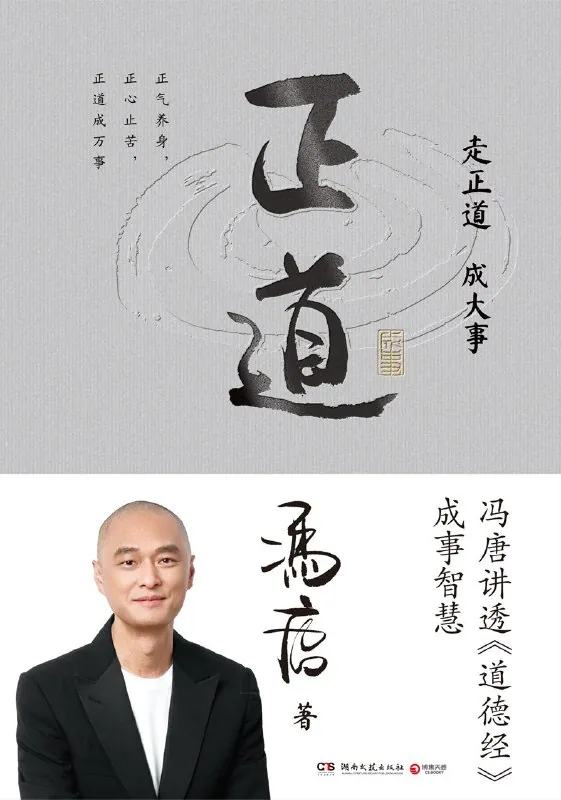 正气养身，
正心止苦，
正道成万事
正道
走正道 成大事
冯唐 著
冯唐讲透《道德经》
成事智慧
湖南文艺出版社
博集天卷
CS-BOOKY